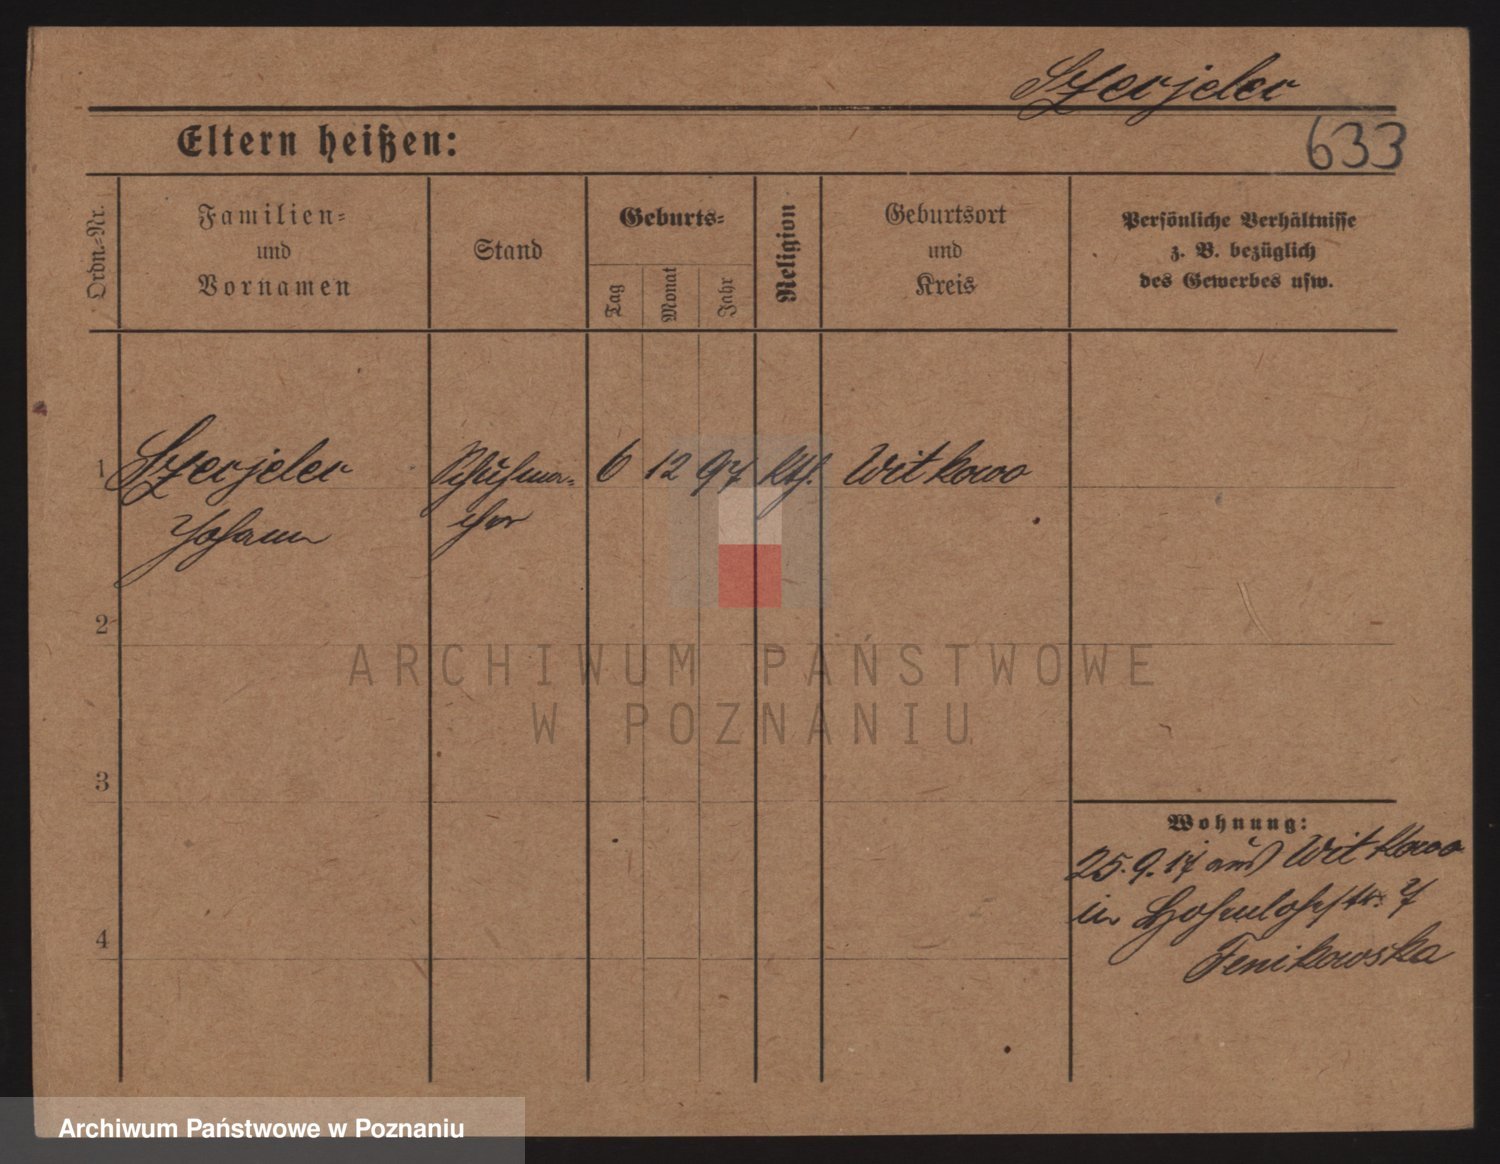 Szerjeler
Eltern heißen:
633
Ordn.-Nr.
Familien-
und
Vornamen
Stand
Geburts-
Tag
Monat
Jahr
Religion
Geburtsort
und
Kreis
Persönliche Verhältnisse
z. B. bezüglich
des Gewerbes usw.
1 Szerjeler Schuhma- 6 12 97 kth. Witkowo
Johann cher
2
3
4
Wohnung:
25.9.17 aus Witkowo
in Hohenlohestr. 7
Fenikowska
ARCHIWUM PAŃSTWOWE
W POZNANIU
Archiwum Państwowe w Poznaniu